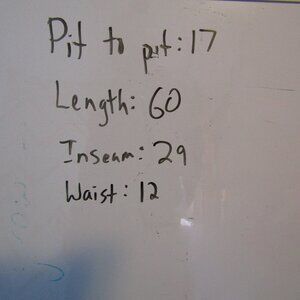 Pit to pit: 17
Length: 60
Inseam: 29
Waist: 12